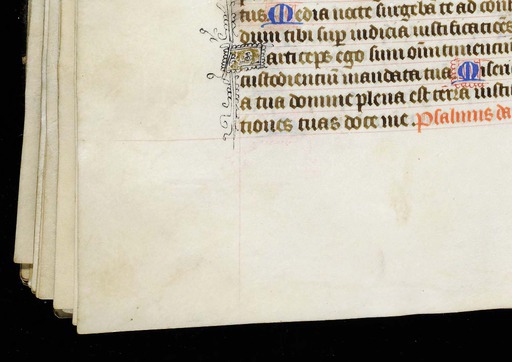 tus Media nocte surgeba te ad con
dum tibi sup iudicia iustificatiões
Particeps ego sum oĩm timenciũ
custodientiũ mandata tua Miseri
a tua domine plena est terra iusti
tiones tuas doce me. Psalmus da